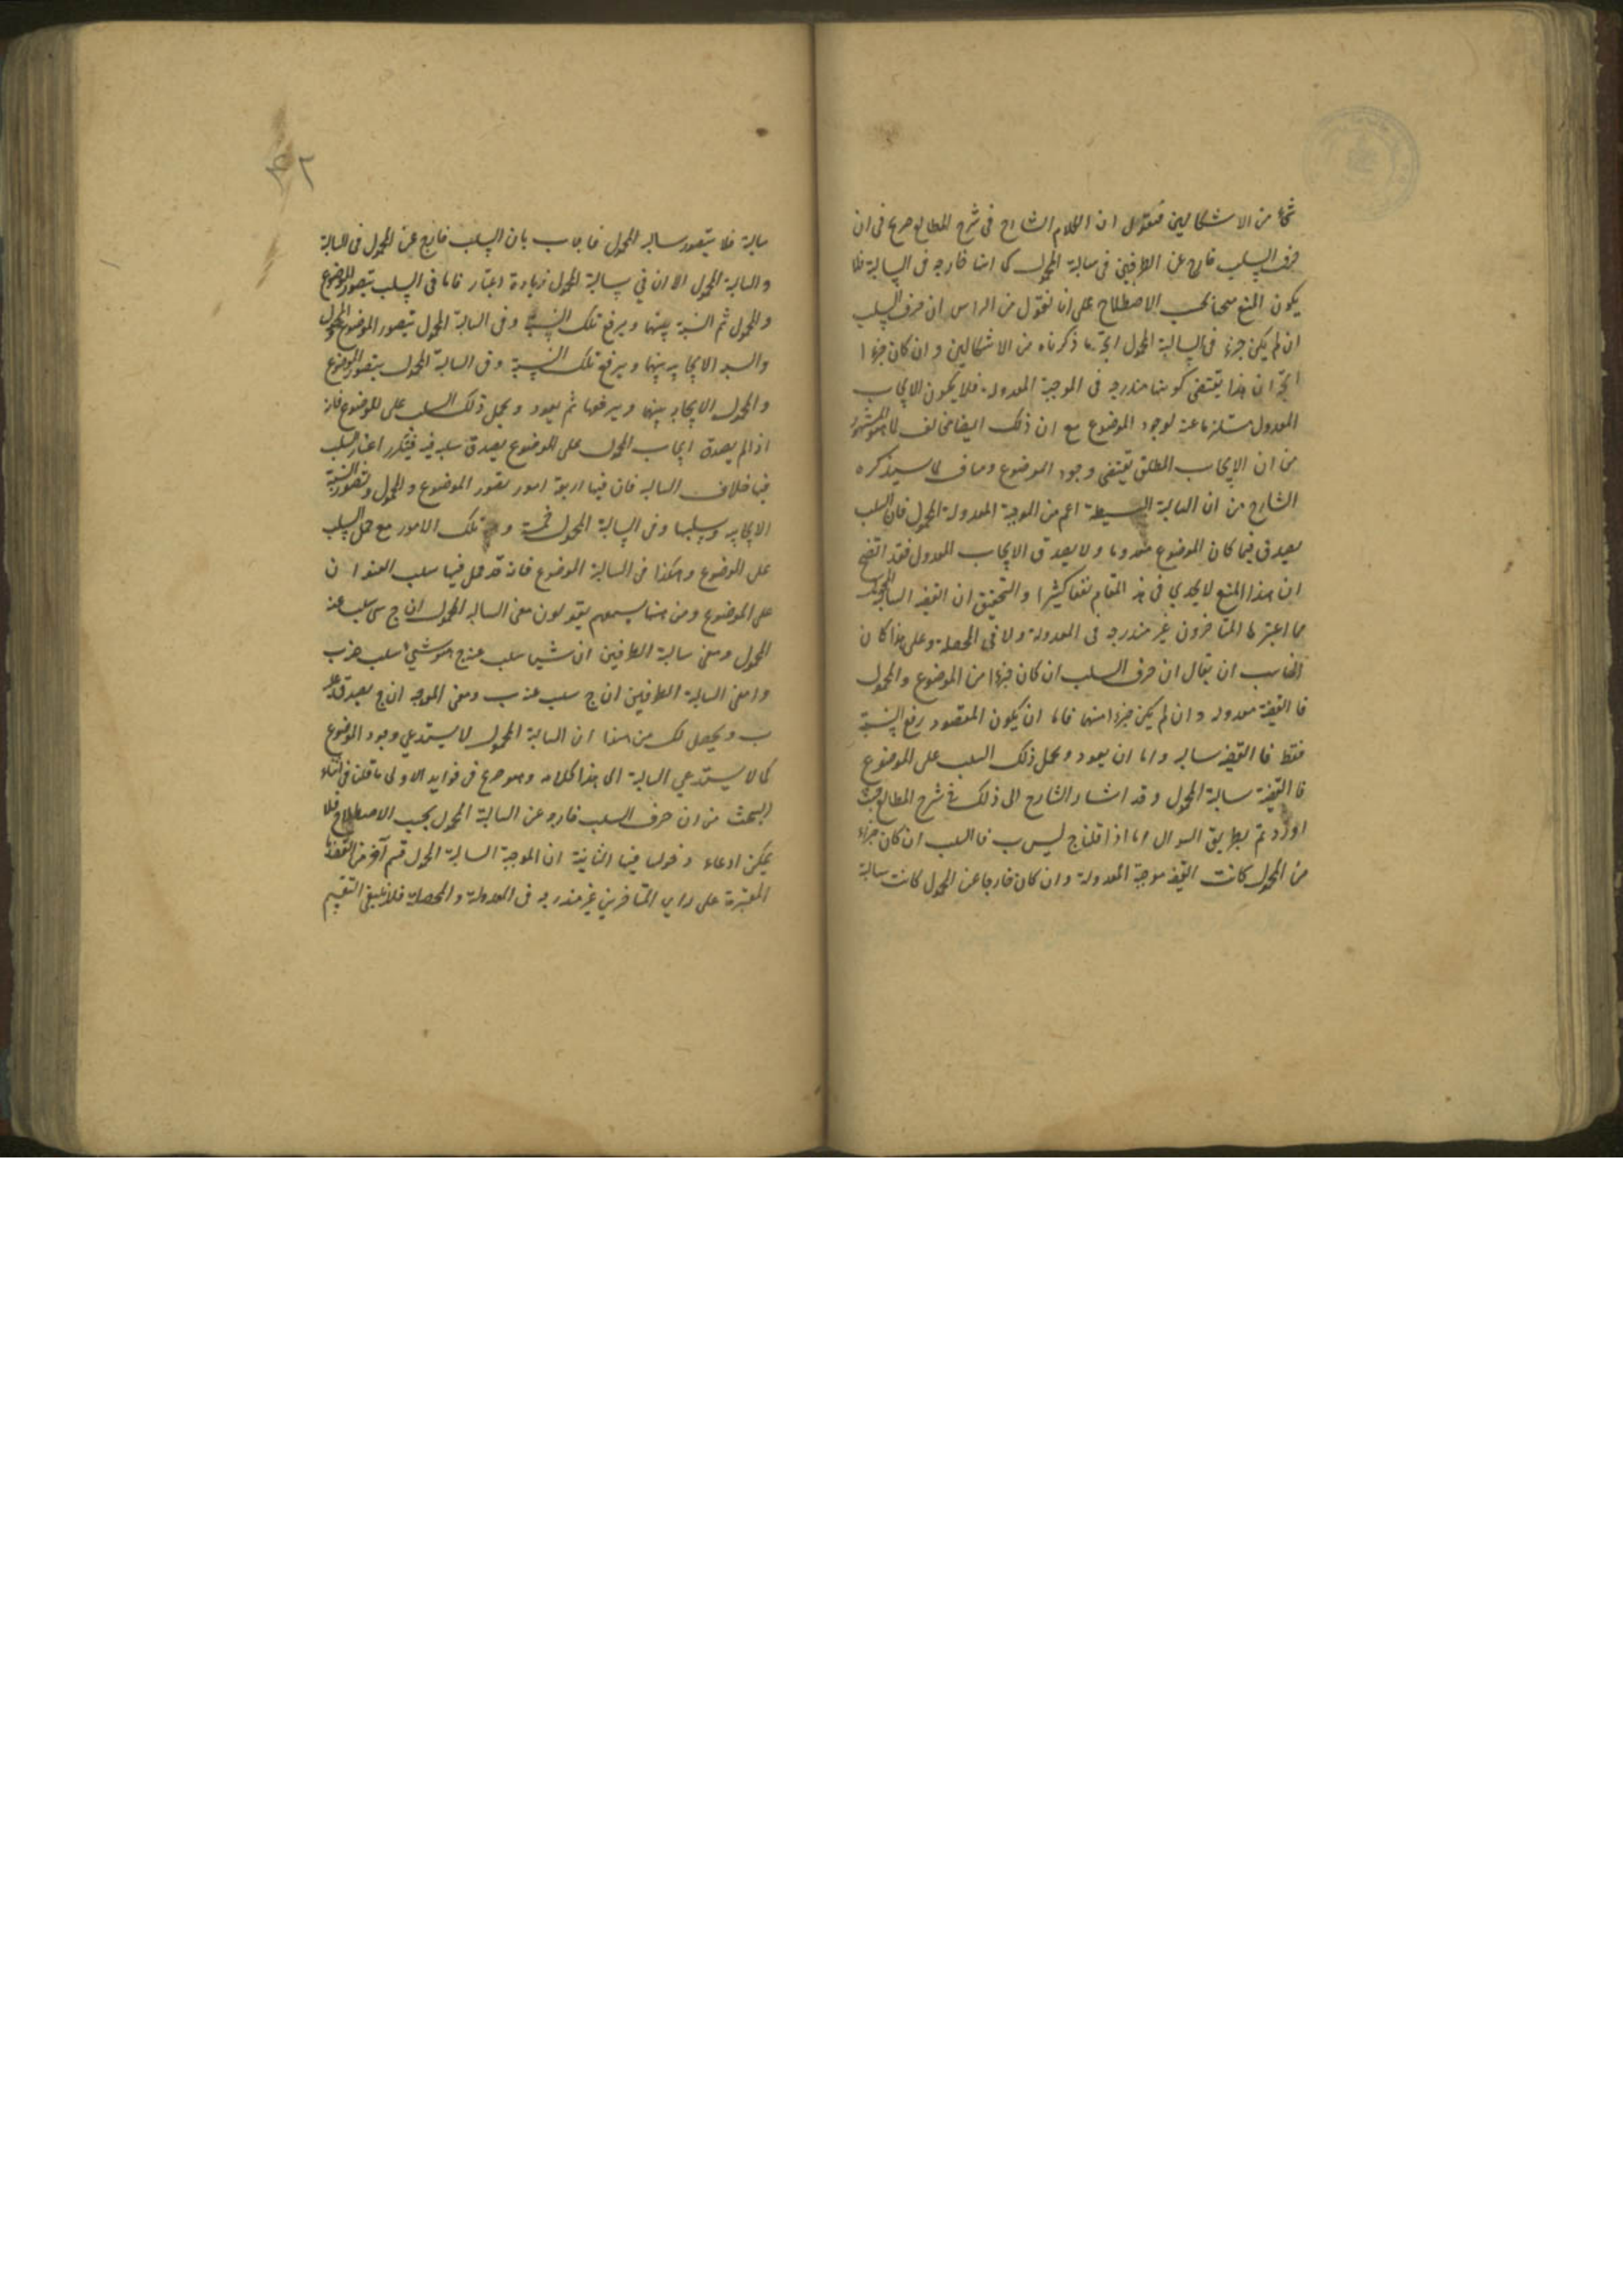 شئ من الاشكالين فنقول ان الكلام الشارح فى شرح المطالع صريح فى ان
حرف السلب خارج عن الطرفين فى سالبة المحمول كما انها خارجه فى السالبة فلا
يكون المنع صحيحا بحسب الاصطلاح على انا نقول من الراس ان حرف السلب
ان لم يكن جزءا فى السالبة المحمول اتجه ما ذكرناه من الاشكالين و ان كان جزءا
اتجه ان هذا يقتضى كونها مندرجه فى الموجبة المعدوله فلا يكون الايجاب
المعدول مستلزما عنه لوجود الموضوع مع ان ذلك ايضا مخالف لما هو المشهور
من ان الايجاب المطلق يقتضى وجود الموضوع ومناف لما سيذكره
الشارح من ان السالبة البسيطة اعم من الموجبة المعدولة المحمول فان السلب
يصدق فيما كان الموضوع معدوما ولا يصدق الايجاب المعدول فقد اتضح
ان هذا المنع لا يجدي فى هذ المقام نفعا كثيرا والتحقيق ان القضية السالبة المحمول
مما اعتبرها المتاخرون غير مندرجه فى المعدولة ولا فى المحصلة وعلى هذا كان
المناسب ان يقال ان حرف السلب ان كان جزءا من الموضوع والمحمول
فالقضية معدوله و ان لم يكن جزءا منهما فاما ان يكون المقصود رفع النسبة
فقط فالقضية سالبه واما ان يعود ويحمل ذلك السلب على الموضوع
فالقضية سالبة المحمول و قد اشار الشارح الى ذلك فى شرح المطالع حيث
اورد ثم بطريق السوال اما اذا قلنا ج ليس ب فالسلب ان كان جزءا
من المحمول كانت القضية موجبة المعدولة وان كان خارجا عن المحمول كانت سالبة
٤٢
سالبة فلا يتصور سالبه المحمول فاجاب بان السلب خارج عن المحمول فى السالبة
والسالبة المحمول الا ان في سالبة المحمول زيادة اعتبار فانا فى السلب نتصور الموضوع
والمحمول ثم النسبة بينهما ويرفع تلك النسبة وفى السالبة المحمول نتصور الموضوع والمحمول
والنسبة الايجابيه بينهما ويرفع تلك النسبة وفى السالبة المحمول يتصور الموضوع
والمحمول الايجابيه بينهما ويرفعها ثم يعود ويحمل ذلك السلب على الموضوع فانه
اذا لم يصدق ايجاب المحمول على الموضوع يصدق سلبه فيه فيتكرر اعتبار السلب
فيها بخلاف السالبه فان فيها اربعة امور تصور الموضوع والمحمول وتصور النسبة
الايجابيه وسلبها وفى السالبة المحمول خمسة و تلك الامور مع حمل السلب
على الموضوع وهكذا فى السالبة الموضوع فانه قد حمل فيها سلب العنوان
على الموضوع ومن هنا يسمعهم يقولون معنى السالبه المحمول ان ج شى سلب عنه
المحمول ومعنى سالبة الطرفين ان شيا سلب عنه ج هو شيئ سلب عنه ب
واما معنى السالبة الطرفين ان ج سلب عنه ب ومعنى الموجبه ان ج يصدق عليه
ب ويحصل لك من هذا ان السالبة المحمول لا يستدعي وجود الموضوع
كما لا يستدعي السالبة الى هذا كلامه وهو صريح فى فوايد الاولى ما قلنا فى اثناء
البحث من ان حرف السلب خارجه عن السالبة المحمول بحسب الاصطلاح فلا
يمكن ادعاء دخولها فيها الثانية ان الموجبة السالبة المحمول قسم آخر من القضية
المعتبرة على راى المتاخرين غير مندرجه فى المعدولة والمحصلة فلا ينبغى التقسيم